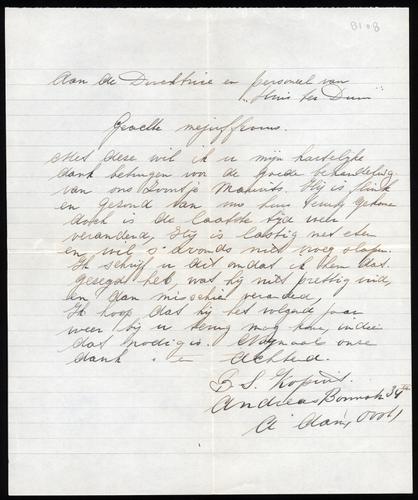 Aan de Direktrice en personeel van
"Huis ter Duin"
Geachte mejuffrouws.
Met deze wil ik u mijn hartelijke
dank betuigen voor de goede behandeling
van ons zoontje Maurits. Hij is flink
en gezond van uw huis terug gekomen
doch is de laatste tijd weer
veranderd, Hij is lastig met eten
en wil s'avonds niet vroeg slapen.
Ik schrijf u dit omdat ik hem dat
gezegd heb wat hij niet prettig vind,
en dan misschien veranderd,
Ik hoop dat hij het volgend jaar
weer bij u terug mag komen, indien
dat nodig is. Nogmaals onze
dank en Achtend.
S. Kopuit.
Andreas Bonnstr 34
A'dam, Oost,